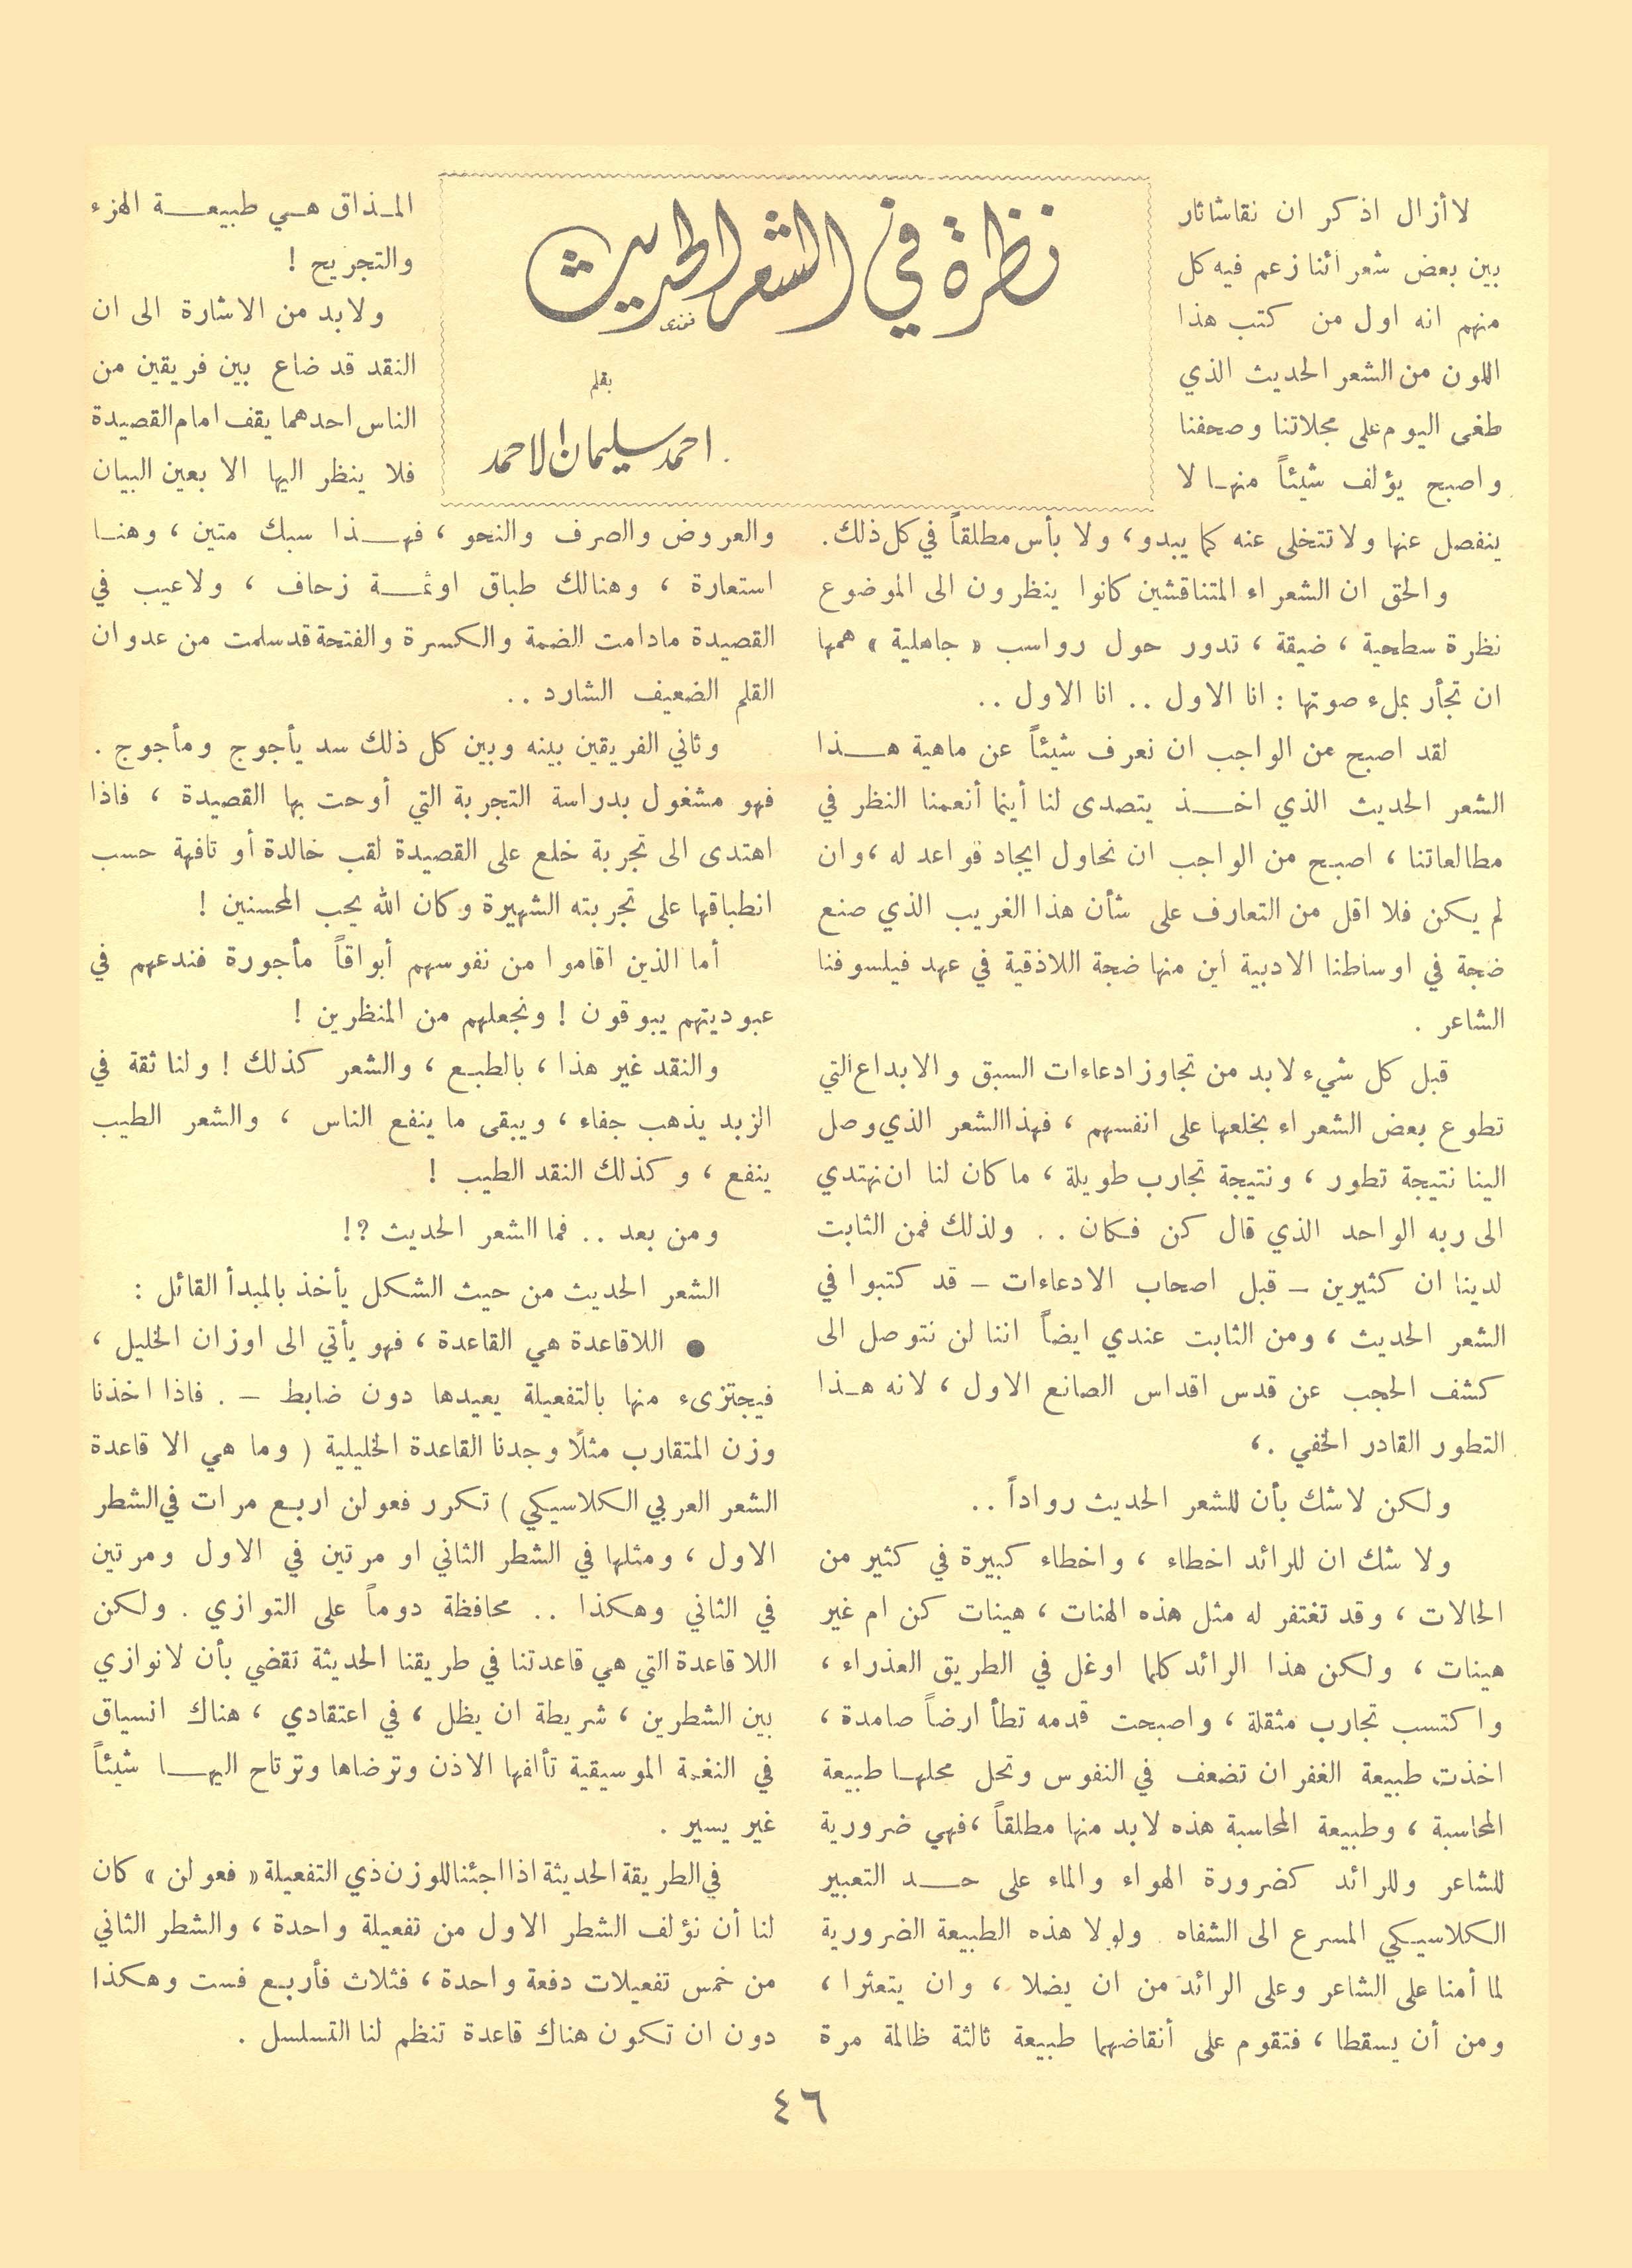 نظرة في الشعر الحديث
بقلم
احمد سليمان الاحمد
لا أزال اذكر ان نقاشا ثار
بين بعض شعرائنا زعم فيه كل
منهم انه اول من كتب هذا
اللون من الشعر الحديث الذي
طغى اليوم على مجلاتنا وصحفنا
واصبح يؤلف شيئاً منهـا لا
ينفصل عنها ولا تتخلى عنه كما يبدو، ولا بأس مطلقاً في كل ذلك.
والحق ان الشعراء المتناقشين كانوا ينظرون الى الموضوع
نظرة سطحية ، ضيقة ، تدور حول رواسب « جاهلية » همها
ان تجأر بملء صوتها : انا الاول .. انا الاول ..
لقد اصبح من الواجب ان نعرف شيئاً عن ماهية هـــذا
الشعر الحديث الذي اخـــذ يتصدى لنا أينما أنعمنا النظر في
مطالعاتنا ، اصبح من الواجب ان نحاول ايجاد قواعد له ، وان
لم يكن فلا اقل من التعارف على شأن هذا الغريب الذي صنع
ضجة في اوساطنا الادبية اين منها ضجة اللاذقية في عهد فيلسوفنا
الشاعر .
قبل كل شيء لا بد من تجاوز ادعاءات السبق والابداع التي
تطوع بعض الشعراء بخلعها على انفسهم ، فهذا الشعر الذي وصل
الينا نتيجة تطور ، ونتيجة تجارب طويلة ، ما كان لنا ان نهتدي
الى ربه الواحد الذي قال كن فـكان .. ولذلك فمن الثابت
لدينا ان كثيرين – قبل اصحاب الادعاءات – قد كتبوا في
الشعر الحديث ، ومن الثابت عندي ايضاً اننا لن نتوصل الى
كشف الحجب عن قدس اقداس الصانع الاول ، لانه هـذا
التطور القادر الخفي .،
ولكن لا شك بأن للشعر الحديث رواداً ..
ولا شك ان للرائد اخطاء ، واخطاء كبيرة في كثير من
الحالات ، وقد تغتفر له مثل هذه الهنات ، هينات كن ام غير
هينات ، ولكن هذا الرائد كلما اوغل في الطريق العذراء ،
واكتسب تجارب مثقلة ، واصبحت قدمه تطأ ارضاً صامدة ،
اخذت طبيعة الغفران تضعف في النفوس وتحل محلهـا طبيعة
المحاسبة ، وطبيعة المحاسبة هذه لا بد منها مطلقاً ، فهي ضرورية
للشاعر وللرائد كضرورة الهواء والماء على حـــد التعبير
الكلاسيكي المسرع الى الشفاه . ولولا هذه الطبيعة الضرورية
لما أمنا على الشاعر وعلى الرائد من ان يضلا ، وان يتعثرا ،
ومن أن يسقطا ، فتقوم على أنقاضهما طبيعة ثالثة ظالمة مرة
المـذاق هـي طبيعـــة الهزء
والتجريح !
ولا بد من الاشارة الى ان
النقد قد ضاع بين فريقين من
الناس احدهما يقف امام القصيدة
فلا ينظر اليها الا بعين البيان
والعروض والصرف والنحو ، فهـــذا سبك متين ، وهنـا
استعارة ، وهنالك طباق او ثمـــة زحاف ، ولا عيب في
القصيدة ما دامت الضمة والكسرة والفتحة قد سلمت من عدوان
القلم الضعيف الشارد ..
وثاني الفريقين بينه وبين كل ذلك سد يأجوج ومأجوج .
فهو مشغول بدراسة التجربة التي أوحت بها القصيدة ، فاذا
اهتدى الى تجربة خلع على القصيدة لقب خالدة أو تافهة حسب
انطباقها على تجربته الشهيرة وكان الله يحب المحسنين !
أما الذين اقاموا من نفوسهم أبواقاً مأجورة فندعهم في
عبوديتهم يبوقون ! ونجعلهم من المنظرين !
والنقد غير هذا ، بالطبـع ، والشعر كذلك ! ولنا ثقة في
الزبد يذهب جفاء ، ويبقى ما ينفع الناس ، والشعر الطيب
ينفع ، وكذلك النقد الطيب !
ومن بعد .. فما الشعر الحديث ؟!
الشعر الحديث من حيث الشكل يأخذ بالمبدأ القائل :
● اللاقاعدة هي القاعدة ، فهو يأتي الى اوزان الخليل ،
فيجتزىء منها بالتفعيلة يعيدها دون ضابط – . فاذا اخذنا
وزن المتقارب مثلاً وجدنا القاعدة الخليلية ( وما هي الا قاعدة
الشعر العربي الكلاسيكي ) تكرر فعولن اربـع مرات في الشطر
الاول ، ومثلها في الشطر الثاني او مرتين في الاول ومرتين
في الثاني وهكذا .. محافظة دوماً على التوازي . ولكن
اللا قاعدة التي هي قاعدتنا في طريقنا الحديثة تقضي بأن لا نوازي
بين الشطرين ، شريطة ان يظل ، في اعتقادي ، هناك انسياق
في النغمة الموسيقية تألفها الاذن وترضاها وترتاح اليهـــا شيئاً
غير يسير .
في الطريقة الحديثة اذا اجئنا للوزن ذي التفعيلة « فعولن » كان
لنا أن نؤلف الشطر الاول من تفعيلة واحدة ، والشطر الثاني
من خمس تفعيلات دفعة واحدة ، فثلاث فأربـع فست وهكذا
دون ان تكون هناك قاعدة تنظم لنا التسلسل .
٤٦